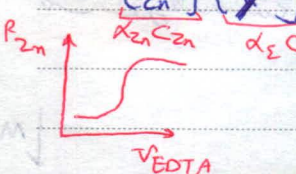 [Zn]
α_Zn C_Zn α_ε C
P_Zn
V_EDTA